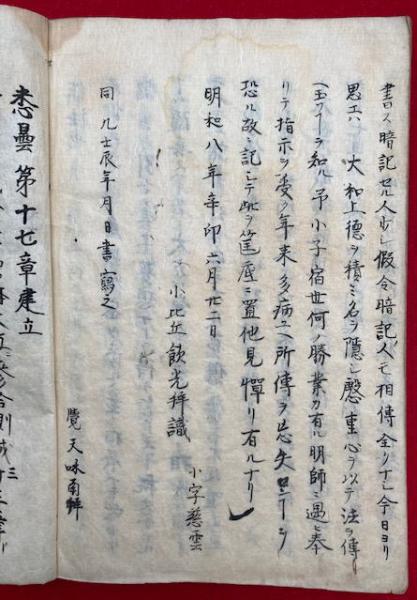 書ス暗記セル人少シ假令暗記ノ人モ相傳全カラス今日ヨリ
思エハ 大和上德ヲ積ミ名ヲ隱シ慇重心ヲ以テ法ヲ傳
玉フヿヲ知ル予小子宿世何ノ勝業カ有ル明師ニ遇ヒ奉
リテ指示ヲ受ク年来多病ユヘ所傳ヲ忘失センヿヲ
恐ル故ニ記シテ此ヲ筐底ニ置他見憚リ有ルナリ
明和八年辛卯六月廿二日
小比丘飲光拝識
小字慈雲
同九壬辰年月日書寫之
覺天
悉曇第十七章建立